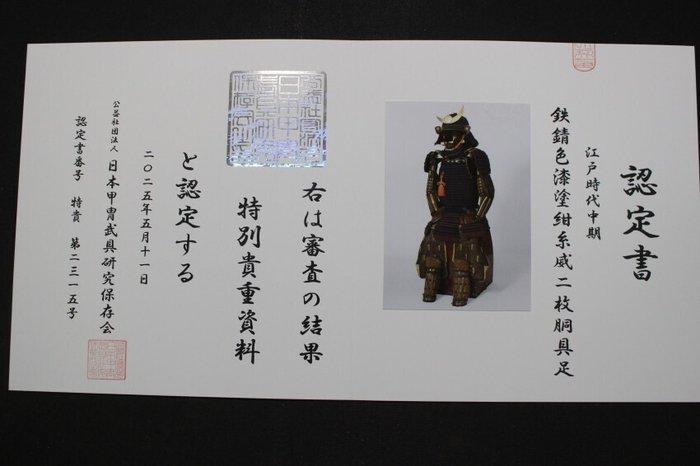 認定書
江戸時代中期
鉄錆色漆塗紺糸威二枚胴具足
右は審査の結果
特別貴重資料
と認定する
二〇二五年五月十一日
公益社団法人 日本甲冑武具研究保存会
認定書番号 特貴 第二三一五号